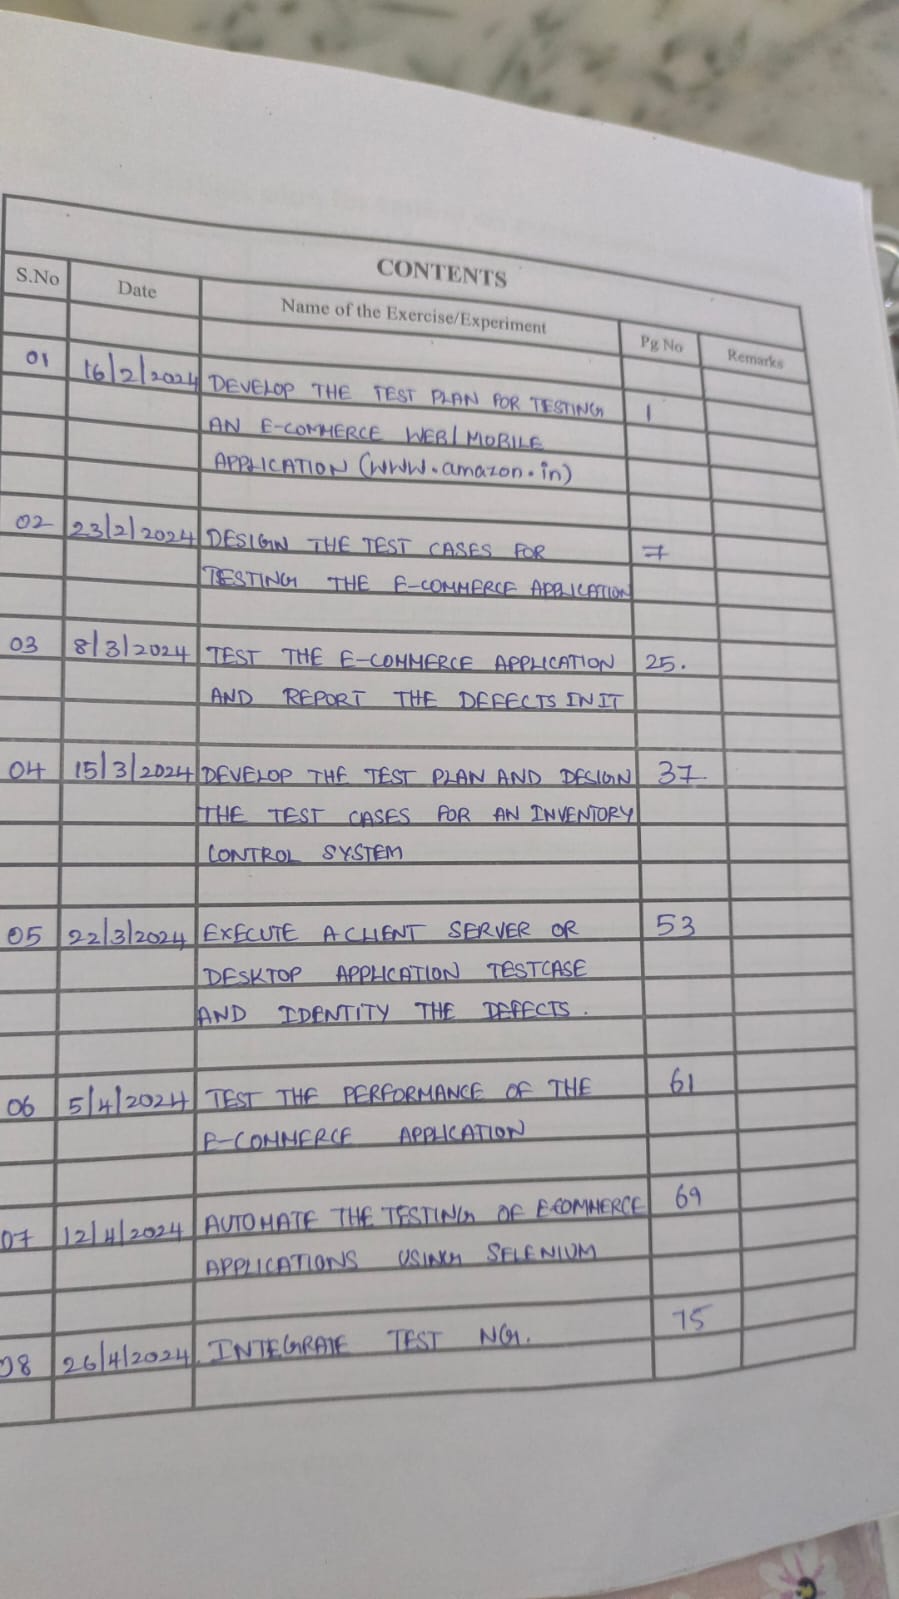 CONTENTS
S.No Date Name of the Exercise/Experiment Pg No Remarks
01 16/2/2024 DEVELOP THE TEST PLAN FOR TESTING 1
AN E-COMMERCE WEB/MOBILE
APPLICATION (WWW.amazon.in)
02 23/2/2024 DESIGN THE TEST CASES FOR 7
TESTING THE E-COMMERCE APPLICATION
03 8/3/2024 TEST THE E-COMMERCE APPLICATION 25.
AND REPORT THE DEFECTS IN IT
04 15/3/2024 DEVELOP THE TEST PLAN AND DESIGN 37
THE TEST CASES FOR AN INVENTORY
CONTROL SYSTEM
05 22/3/2024 EXECUTE A CLIENT SERVER OR 53
DESKTOP APPLICATION TESTCASE
AND IDENTITY THE DEFECTS.
06 5/4/2024 TEST THE PERFORMANCE OF THE 61
E-COMMERCE APPLICATION
07 12/4/2024 AUTOMATE THE TESTING OF E-COMMERCE 69
APPLICATIONS USING SELENIUM
08 26/4/2024 INTEGRATE TEST NG. 75